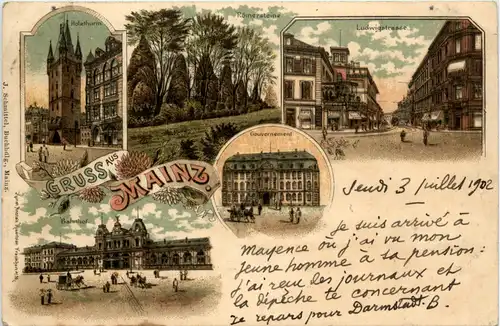 Holzthurm
Römersteine
Ludwigstrasse
GRUSS AUS
MAINZ.
Gouvernement
Bahnhof
J. Schmittel, Buchhdlg., Mainz.
Jeudi 3 juillet 1902
je suis arrivé à
Mayence où j'ai vu mon
jeune homme à sa pension:
j'ai reçu les journaux et
la dépêche te concernant
je repars pour Darmstadt. B.